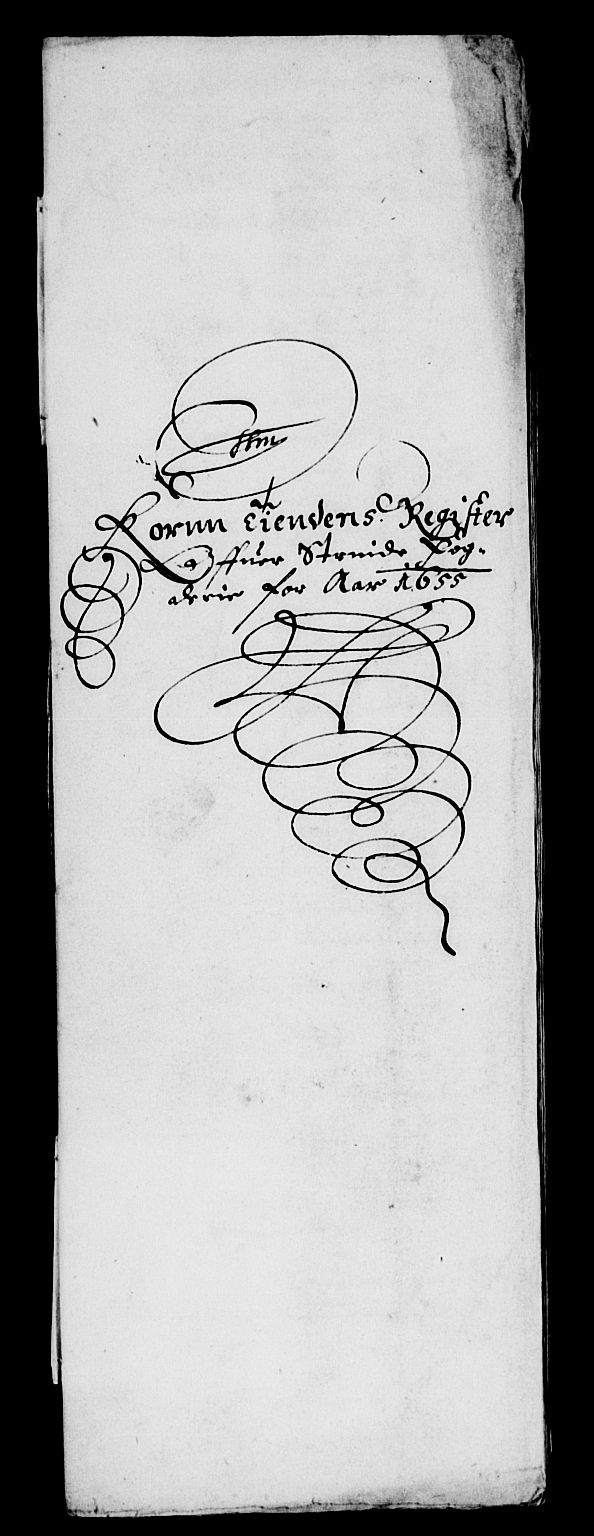 Kornn Tiendens Register
Offuer Strinde Fog-
derie for Aar 1655